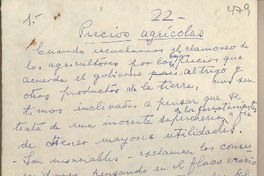 1.- 22-- 479
Precios agrícolas
Cuando escuchamos el clamoreo de
los agricultores por los precios que
acuerda el gobierno para el trigo y
otros productos de la tierra, nos sen
timos inclinados a pensar que se
trata de una inocente superchería a fin
de obtener mayores utilidades.
Son innumerables - exclaman los consu
pensando en el flaco erario